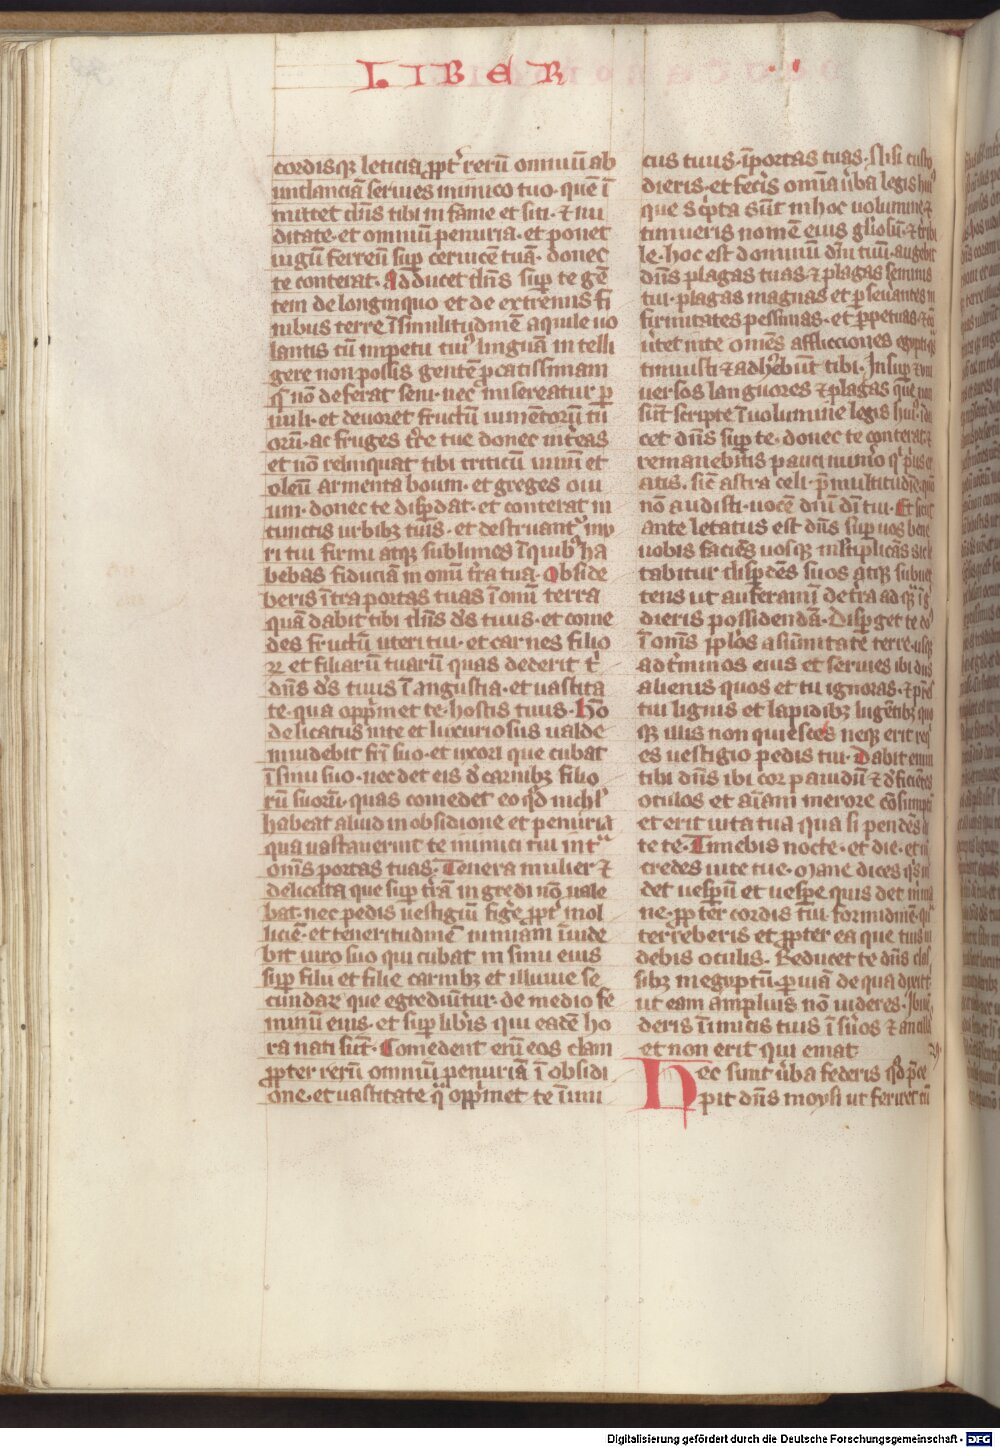 LIBER
cordisqꝫ leticia ꝓpt᷑ rerū omniū ab
undanciā servies inimico tuo · quē ī
mittet dn̄s tibi in fame et siti · ⁊ nu
ditate · et omniū penuria · et ponet
iugū ferreū suꝑ cervicē tuā · donec
te conterat · Adducet dn̄s suꝑ te gē
tem de longinquo et de extremis fi
nibus terre ī similitudinē aquile vo
lantis cū impetu cuiꝰ linguā intelli
gere non possis gentē ꝓcatissimam
q̄ nō deferat seni · nec misereatur ꝑ
vuli · et devoret fructū iumentorū tu
orū · ac fruges t᷑re tue donec int᷑eas
et nō relinquat tibi triticū vinū et
oleū armenta boum · et greges oui
um · donec te disꝑdat · et conterat in
cunctis urbibꝫ tuis · et destruant᷑ mu
ri tui firmi atqꝫ sublimes ī quibꝰ ha
bebas fiduciā in omni t᷑ra tua · Obside
beris ītra portas tuas ī omni terra
quā dabit tibi dn̄s d̄s tuus · et come
des fructū uteri tui · et carnes filio
rꝫ et filiarū tuarū quas dederit t̄
dn̄s d̄s tuus ī angustia · et vastita
te · qua opp̄met te · hostis tuus · Hō
delicatus in te et luxuriosus valde
invidebit fr̄i suo · et uxori que cubat
ī sinu suo · nec det eis d̄ carnibꝫ filio
rū suorū · quas comedet eo qd̄ nichil
habeat aliud in obsidione et penuria
qua vastaverint te inimici tui int̄
om̄s portas tuas · Tenera mulier ⁊
delicata que suꝑ t᷑rā ingredi nō vale
bat · nec pedis vestigiū fig᷑e ꝓpt᷑ mol
liciē · et teneritudinē nimiam īvide
bit viro suo qui cubat in sinu eius
suꝑ filii et filie carnibꝫ et illuvie se
cundaꝝ que egrediūtur · de medio fe
minū eius · et suꝑ lib᷑is qui eadē ho
ra nati sūt · Comedent eni eos clam
ꝓpter rerū omniū penuriā ī obsidi
one · et vastitate q̄ opp̄met te inimi
cus tuus · ī portas tuas · Nisi custo
dieris · et fec᷑is omīa v᷑ba legis huiꝰ
que sc᷑pta sūt in hoc volumine ⁊
timueris nomē eius gl̄iosū · ⁊ t᷑ribi
le · hoc est dominū dm̄ tuū · augebit
dn̄s plagas tuas ⁊ plagas seminis
tui · plagas magnas et ꝑseverantes in
firmitates pessimas · et ꝑpetuas · ⁊ cō
v᷑tet in te omēs afflicciones egypti q̄s
timuisti ⁊ adh᷑ebūt tibi · Insuꝑ ⁊ uni
versos languores ⁊ plagas que non
sūt scripte ī volumine legis huiꝰ · īdu
cet dn̄s suꝑ te · donec te conterat · ⁊
remanebitis pauci num᷑o q̄ p᷑us er
atis · sic̄ astra celi · p̄ multitudīe · qm̄
nō audisti · vocē dn̄i di tui · Et sicut
ante letatus est dn̄s suꝑ vos bene
vobis faciēs vosqꝫ m̄ltiplicās sic le
tabitur disꝑdēs vos atqꝫ subver
tens ut auferamī de t᷑ra ad q̄ īg
dieris possidendā · Disꝑget te do
ī omis ꝓpl̄os a sūmitate terre · usqꝫ
ad t᷑minos eius et servies ibi diis
alienis quos et tu ignoras · ⁊ pr̄es
tui lignis et lapidibꝫ · In gentibꝫ quo
qꝫ illis non quiesces neqꝫ erit req
es vestigio pedis tui · Dabit enim
tibi dn̄s ibi cor pavidū ⁊ d̄ficiētes
oculos et aīam merore cōsumptā
et erit vita tua quasi pendēs an
te te · Timebis nocte · et die · et n̄
credes vite tue · Mane dices q̄s m̄
det vesꝑū et vesꝑe quis det m̄ ma
ne · ꝓpter cordis tui formidinē · q̄
terreberis et ꝓpter ea que tuis vi
debis oculis · Reducet te dn̄s clas
sibꝫ in egyptū · ꝑ viā de qua dixit t᷑
ut eam amplius nō videres · Ibi vē
deris inimicis tuis ī s᷑vos ⁊ ancillas
et non erit qui emat
29
Hec sunt v᷑ba federis qd̄ p᷑ce
pit dn̄s moysi ut feriret cū
Digitalisierung gefördert durch die Deutsche Forschungsgemeinschaft - DFG